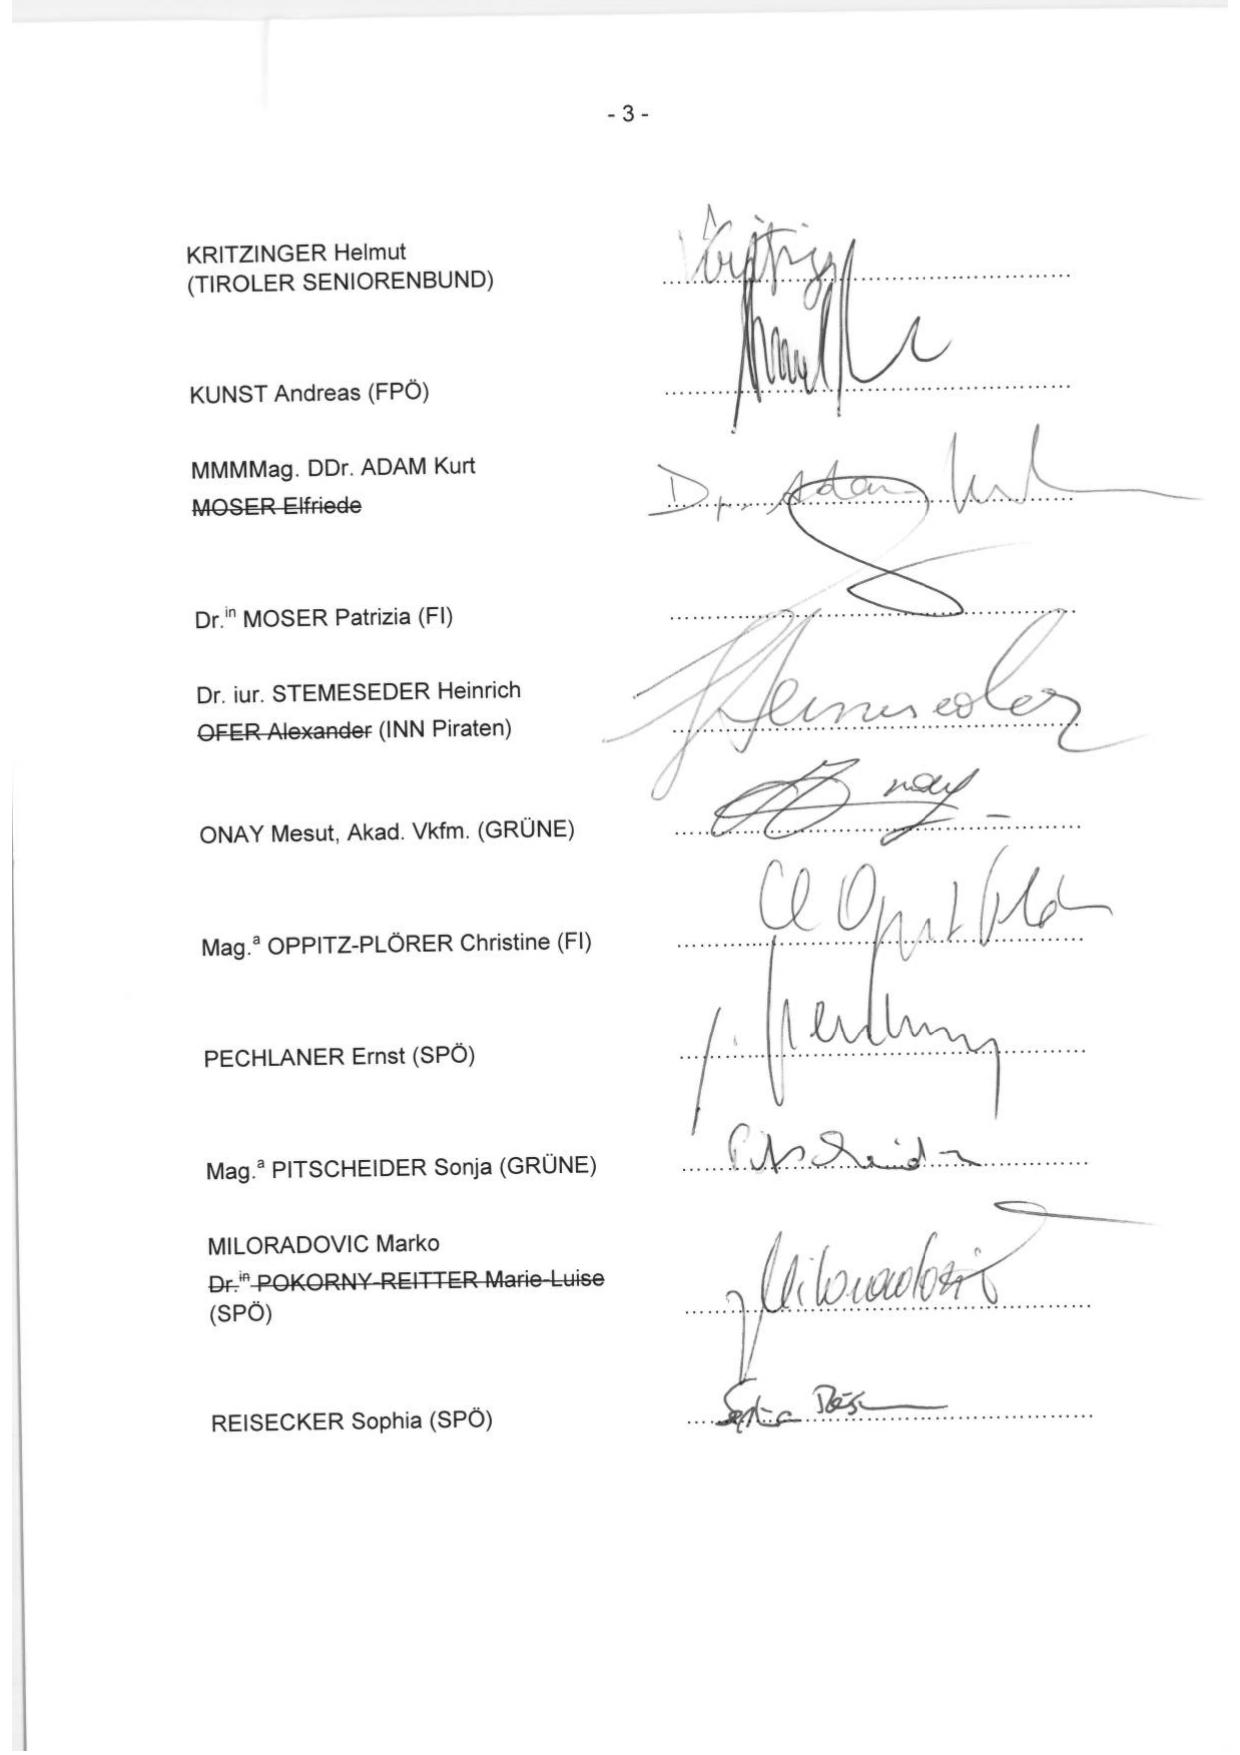 - 3 -
KRITZINGER Helmut
(TIROLER SENIORENBUND)
KUNST Andreas (FPÖ)
MMMMag. DDr. ADAM Kurt
Dr. Adam Kurt
MOSER Elfriede
Dr.in MOSER Patrizia (FI)
Dr. iur. STEMESEDER Heinrich
Stemeseder
OFER Alexander (INN Piraten)
ONAY Mesut, Akad. Vkfm. (GRÜNE)
Onay
Mag.a OPPITZ-PLÖRER Christine (FI)
PECHLANER Ernst (SPÖ)
Mag.a PITSCHEIDER Sonja (GRÜNE)
Pitscheider
MILORADOVIC Marko
Dr.in POKORNY-REITTER Marie-Luise
(SPÖ)
Miloradovic
REISECKER Sophia (SPÖ)
Sophia